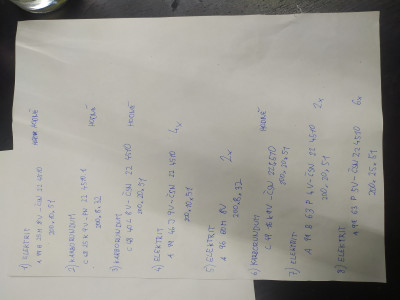 1) ELEKTRIT
A 99 B 25 M 8V - ČSN 22 4510
200.10.51
HODNĚ
2) KARBORUNDUM
C 48 25 K 9V - ČSN 22 4510
200.8.32
HODNĚ
3) KARBORUNDUM
C 48 40 - 8V - ČSN 22 4510
200.20.51
HODNĚ
4) ELEKTRIT
A 99 46 J 9V - ČSN 22 4510
200.10.51
4x
5) ELEKTRIT
A 96 60 M 8V
200.8.32
2x
6) KARBORUNDUM
C 49 16 K 9V - ČSN 22 4510
200.20.51
HODNĚ
7) ELEKTRIT
A 99 B 63 P 4V - ČSN 22 4510
200.20.51
2x
8) ELEKTRIT
A 99 63 P 5V - ČSN 22 4510
200.25.51
6x